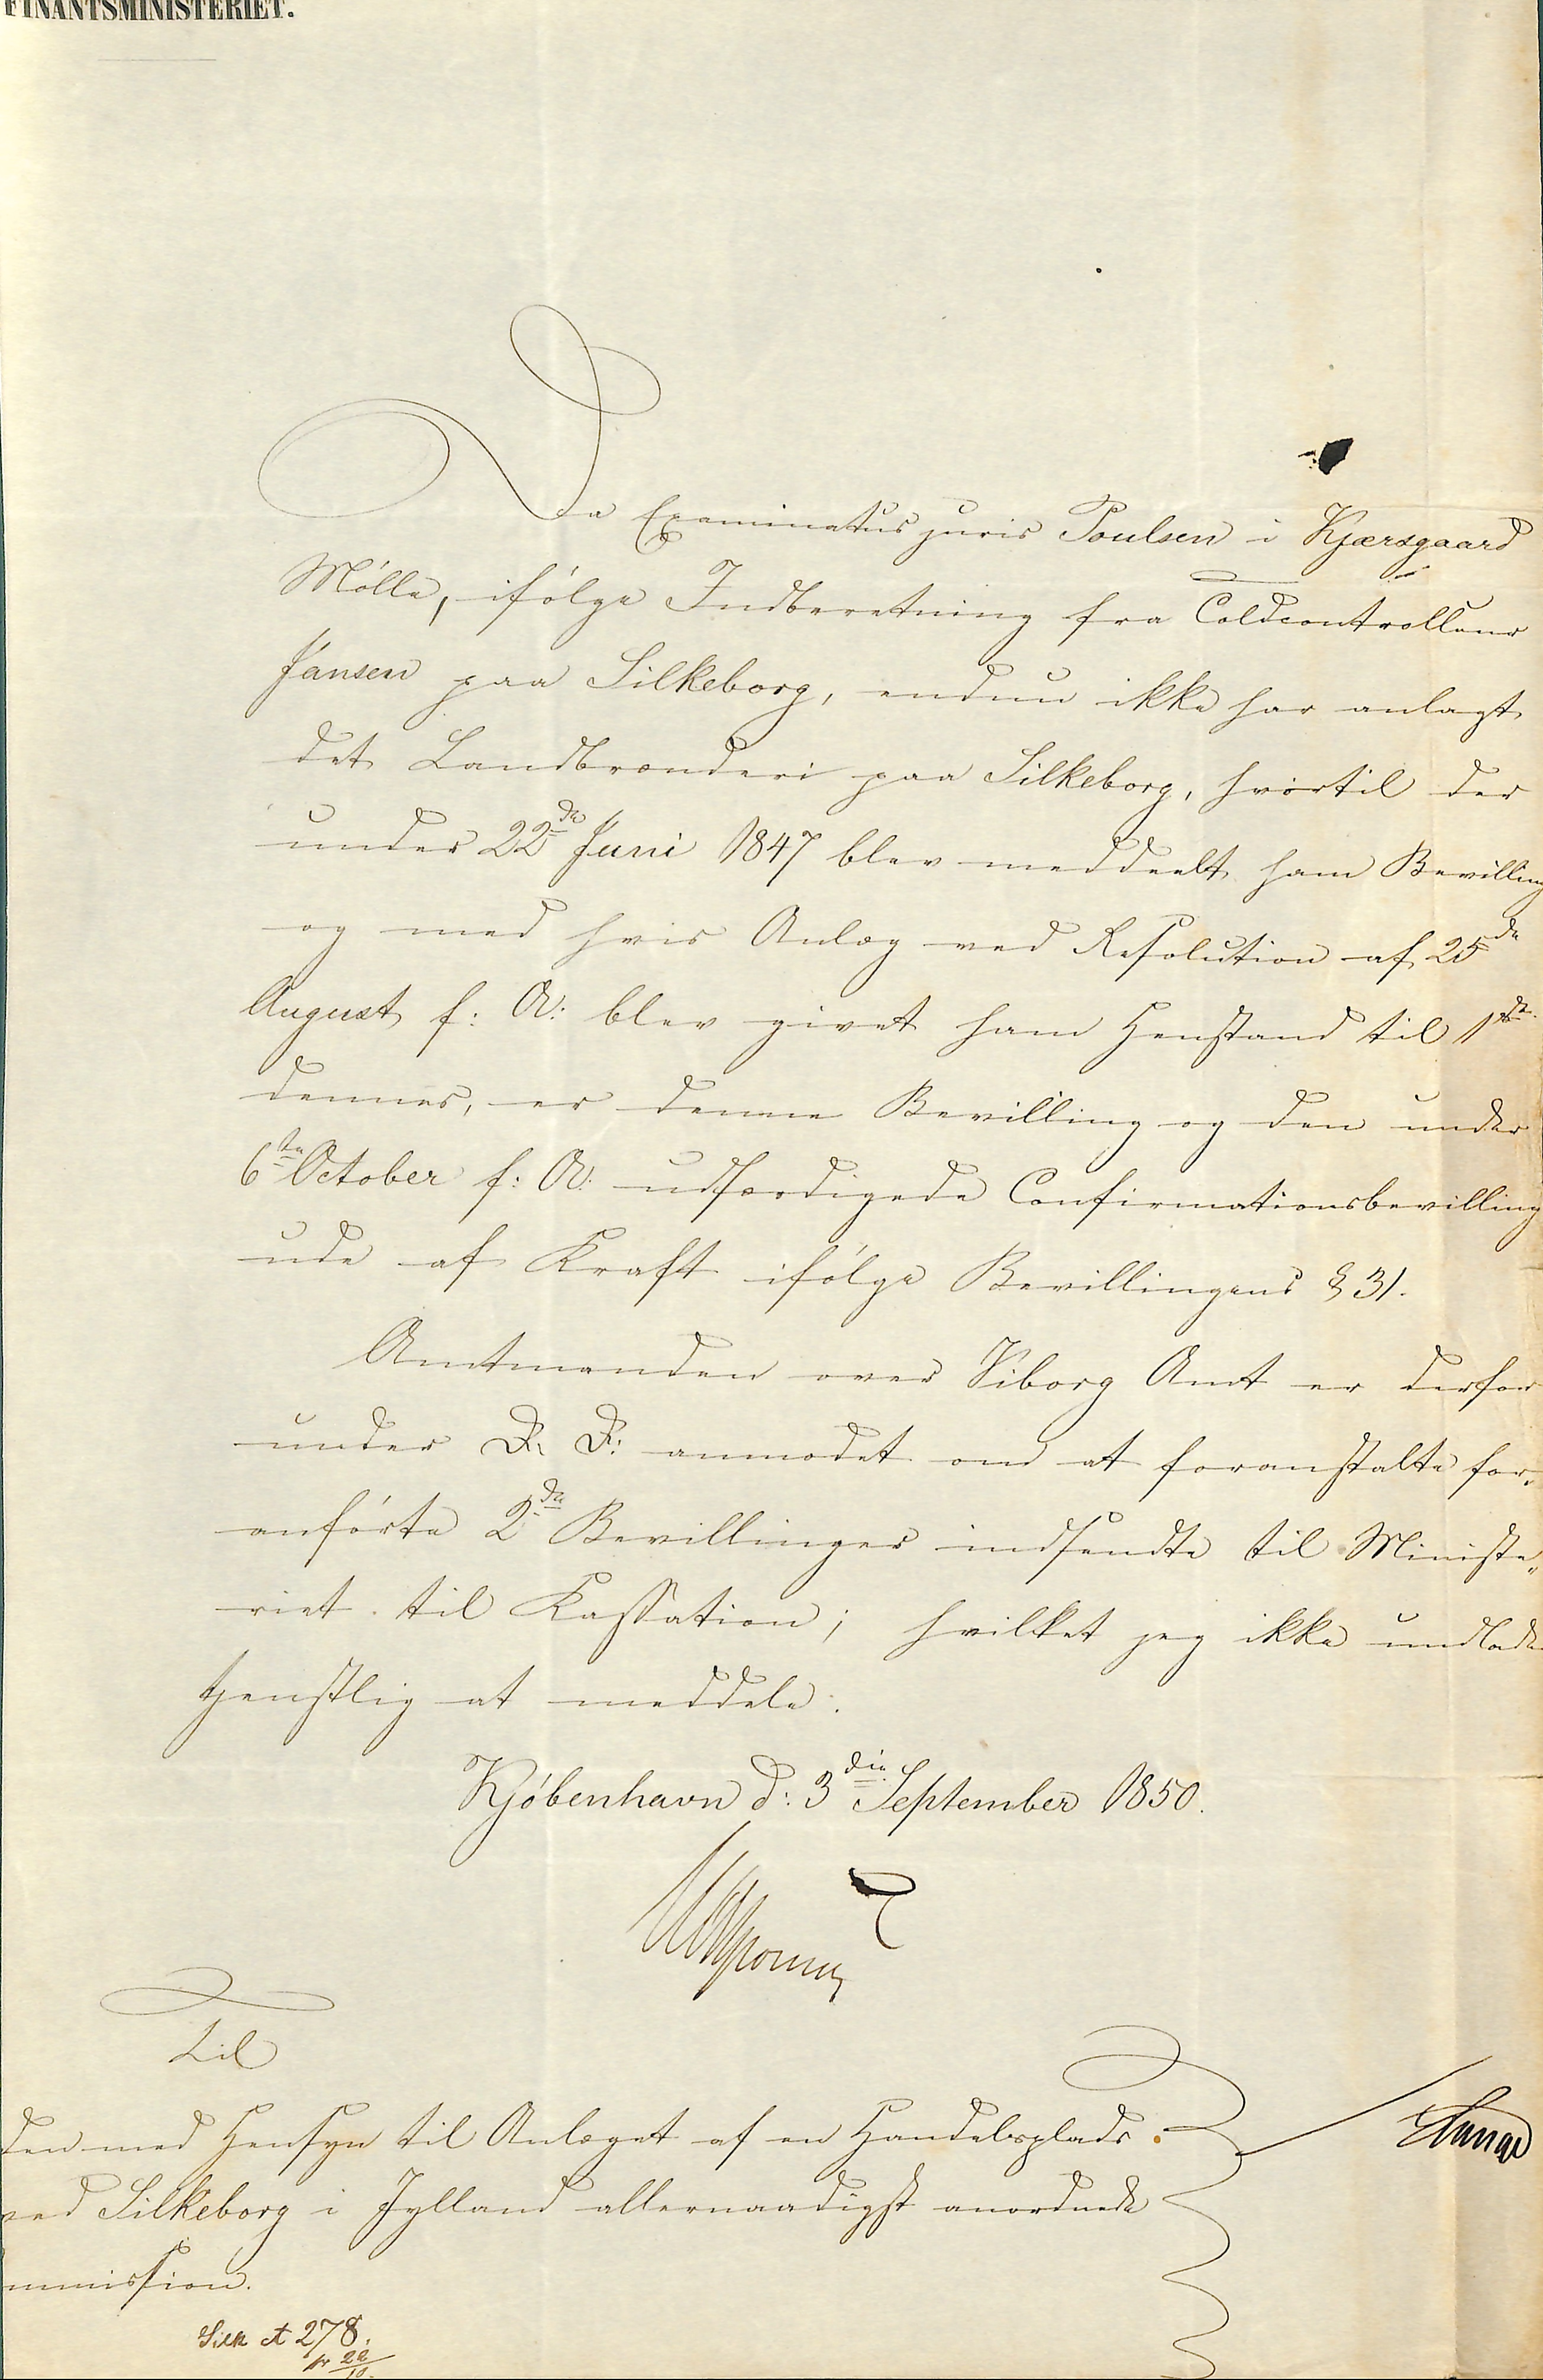 FINANTSMINISTERIET.
Da Examinatus juris Poulsen i Kjærsgaard
Mølle, ifølge Indberetning fra Toldcontrolleur
Jansen paa Silkeborg, endnu ikke har anlagt
det Landbrænderi paa Silkeborg, hvortil der
under 22de Juni 1847 blev meddeelt ham Bevilling
og med hvis Anlæg ved Resolution af 25de
August f: A: blev givet ham Henstand til 1ste
dennes, er denne Bevilling og den under
6te October f: A: udfærdigede Confirmationsbevilling
ude af Kraft ifølge Bevillingens § 31.
Amtmanden over Viborg Amt er derfor
under D: D: anmodet om at foranstalte for-
anførte 2de Bevillinger indsendte til Ministe-
riet til Kassation; hvilket jeg ikke undlader
tjenstlig at meddele.
Kjøbenhavn d: 3die September 1850.
Til
den med Hensyn til Anlæget af en Handelsplads
ved Silkeborg i Jylland allernaadigst anordnede
mmission.
Silk A 278.
pr 22/10.